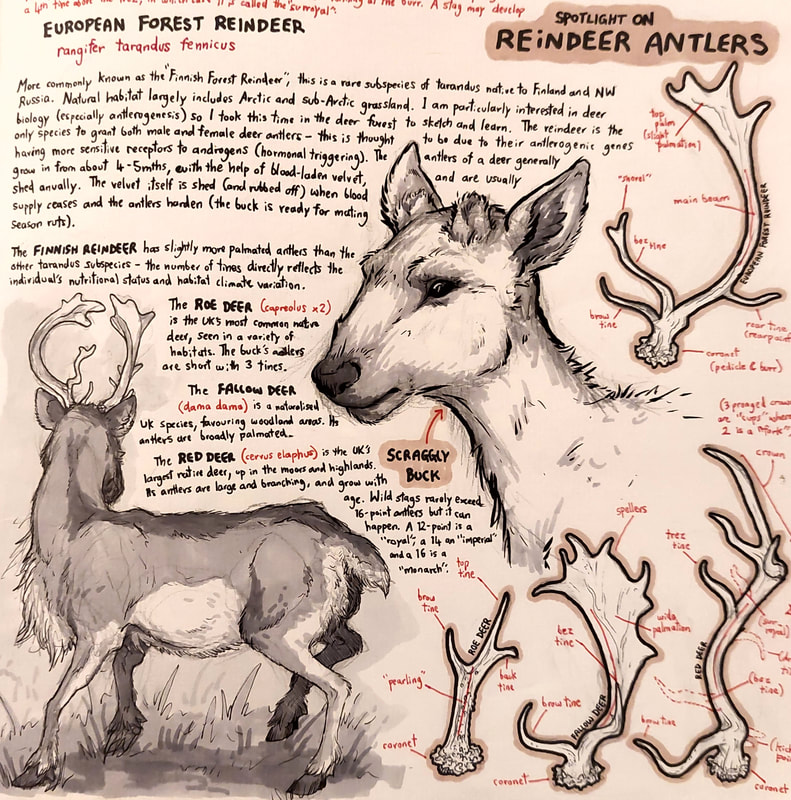 a 4th tine above the trez, in which case it is called the "surroyal".
at the burr. A stag may develop
EUROPEAN FOREST REINDEER
rangifer tarandus fennicus
SPOTLIGHT ON
REINDEER ANTLERS
More commonly known as the "Finnish Forest Reindeer", this is a rare subspecies of tarandus native to Finland and NW
Russia. Natural habitat largely includes Arctic and sub-Arctic grassland. I am particularly interested in deer
biology (especially antlerogenesis) so I took this time in the deer forest to sketch and learn. The reindeer is the
only species to grant both male and female deer antlers - this is thought to be due to their antlerogenic genes
having more sensitive receptors to androgens (hormonal triggering). The antlers of a deer generally
grow in from about 4-5mths, with the help of blood-laden velvet, and are usually
shed anually. The velvet itself is shed (and rubbed off) when blood
supply ceases and the antlers harden (the buck is ready for mating
season ruts).
The FINNISH REINDEER has slightly more palmated antlers than the
other tarandus subspecies - the number of tines directly reflects the
individual's nutritional status and habitat climate variation.
The ROE DEER (capreolus x2)
is the UK's most common native
deer, seen in a variety of
habitats. The buck's antlers
are short with 3 tines.
The FALLOW DEER
(dama dama) is a naturalised
UK species, favouring woodland areas. Its
antlers are broadly palmated.
The RED DEER (cervus elaphus) is the UK's
largest native deer, up in the moors and highlands.
Its antlers are large and branching, and grow with
age. Wild stags rarely exceed
16-point antlers but it can
happen. A 12-point is a
"royal", a 14 an "imperial"
and a 16 is a
"monarch".
SCRAGGLY
BUCK
top
palm
(slight
palmation)
"shovel"
main beam
bez tine
brow
tine
EUROPEAN FOREST REINDEER
rear tine
coronet
(pedicle & burr)
(3 pronged crown
are "cups"
2 is a "fork")
top
tine
brow
tine
ROE DEER
back
tine
"pearling"
coronet
spellers
bez
tine
wide
palmation
brow tine
FALLOW DEER
coronet
crown
trez
tine
RED DEER
(bez
tine)
brow tine
coronet